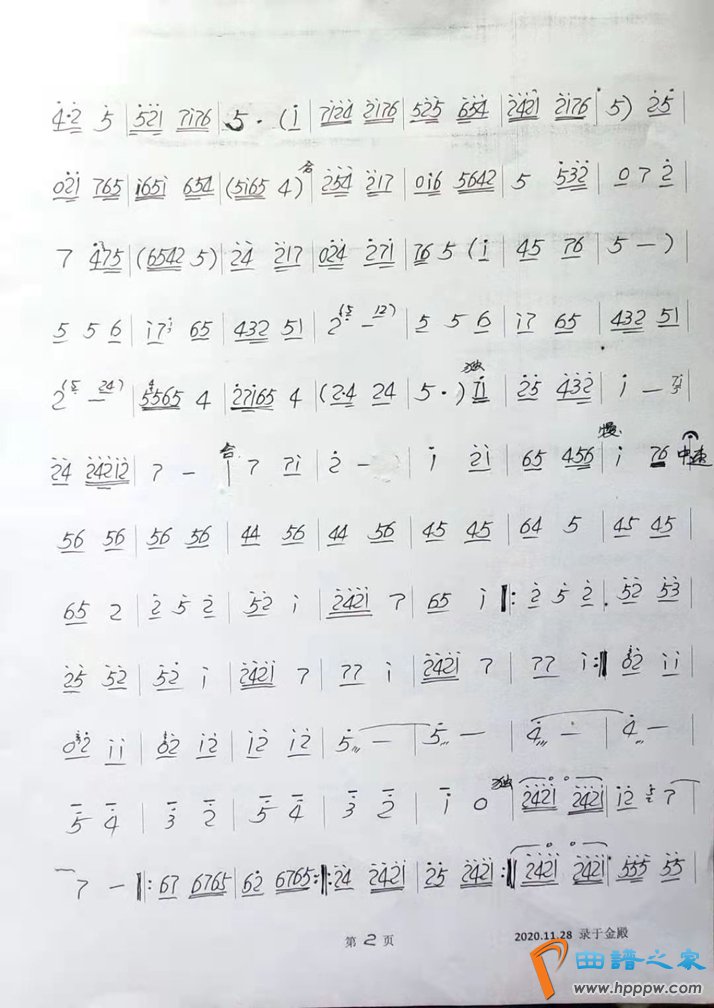 4·2 5 | 521 7176 | 5 · (1 | 7124 2176 | 525 654 | 2421 2176 | 5) 25
021 765 | 1651 654 | (5165 4) 合 | 254 217 | 016 5642 | 5 532 | 0 7 2
7 475 | (6542 5) | 24 217 | 024 271 | 76 5 (1 | 45 76 | 5 — )
5 5 6 | 17 65 | 432 51 | 2 (5 — 12) | 5 5 6 | 17 65 | 432 51
2 (5 — 24) | 5565 4 | 27165 4 | (2·4 24 | 5 ·) 独 71 | 25 432 | 1 —
24 24212 | 7 — 合 | 7 71 | 2 — | 1 21 | 65 456 | 慢 1 76 中速
56 56 | 56 56 | 44 56 | 44 56 | 45 45 | 64 5 | 45 45
65 2 | 2 5 2 | 52 1 | 2421 7 | 65 1 ‖: 2 5 2 | 52 53
25 52 | 52 1 | 2421 7 | 77 1 | 2421 7 | 77 1 :‖ 02 11
02 11 | 02 12 | 12 12 | 5 — | 5 — | 4 — | 4 —
5 4 | 3 2 | 5 4 | 3 2 | 1 0 独 | 2421 2421 | 12 7
7 — ‖: 67 6765 | 62 6765 :‖: 24 2421 | 25 2421 :‖ 2421 2421 | 555 55
第 2 页
2020.11.28 录于金殿
曲谱之家
www.hpppw.com